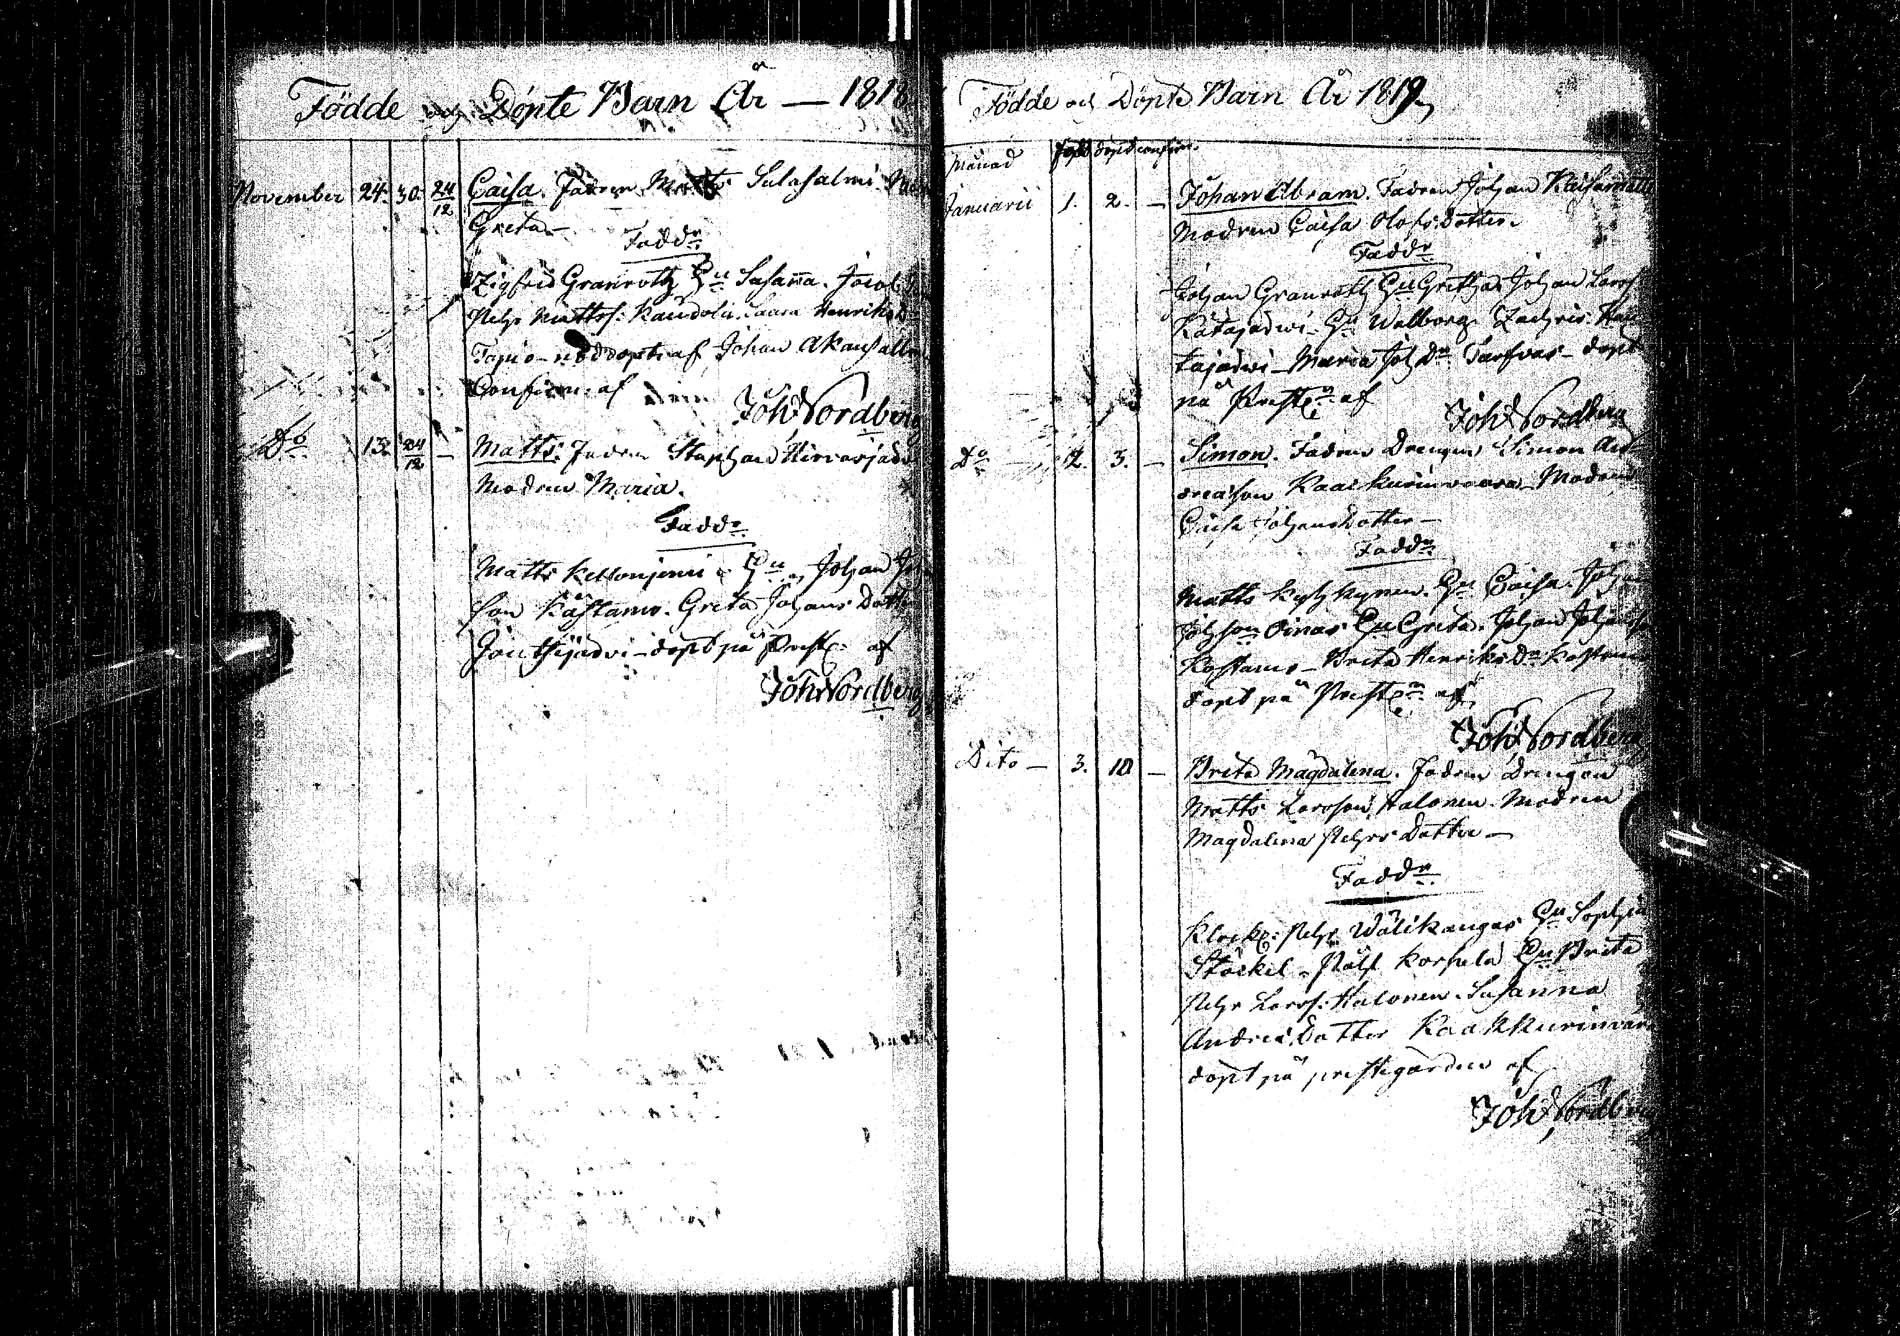 Födde och Döpte Barn År — 1818
November 24. 30. 24/12 Caisa. Fadren Matts Sulasalmi
Greta —
Fadd:r
Zigfrid Granroth Hu Susanna. Jacob
Pehr Mattss: Kandola. Caara Henriks
Tapio — nöddöpt af Johan Akansall
Confirm: af
Joh Nordberg
Do 13. 24/12 — Matts. Fadren Staphan Hirvasjärvi
Modren Maria.
Fadd:r
Matts Kellonjemi Hu Johan
son Kåstamo. Greta Johans Dotter
Jontijärvi — döpt på Prest: af
Joh Nordberg
Födde och Döpte Barn År 1819
Månad född döpt confirm.
Januarii 1. 2. — Johan Abram. Fadren Johan
Modren Caisa Olofs Dotter.
Fadd:r
Johan Granroth Hu Gretha Johan Larss
Katajarvi Hu Walborg Zachris
tajarvi — Maria Joh Dr Sarfvas — döpt
på Prest:n af
Joh Nordberg
Do 2. 3. — Simon. Fadren Drengen Simon And
reasson Kaarkurinvaara. Modren
Caisa Johans Dotter —
Fadd:r
Matts Kyhkynen. Hu Caisa. Johan
Johsson Oinas Hu Greta. Johan Johansson
Kostamo — Brita Henriks Dr Kostamo
döpt på Prest:n af
Joh Nordberg
Dito — 3. 10 — Brita Magdalena. Fadren Drengen
Matts Larsson Halonen. Modren
Magdalena Pehrs Dotter —
Fadd:r
Klock: Pehr Wälikangas Hu Sophia
Stöckel — Påhl Korpela Hu Brita
Pehr Larss: Halonen. Susanna
Andrea Dotter Kaarkurinvar
döpt på prestegården af
Joh Nordberg